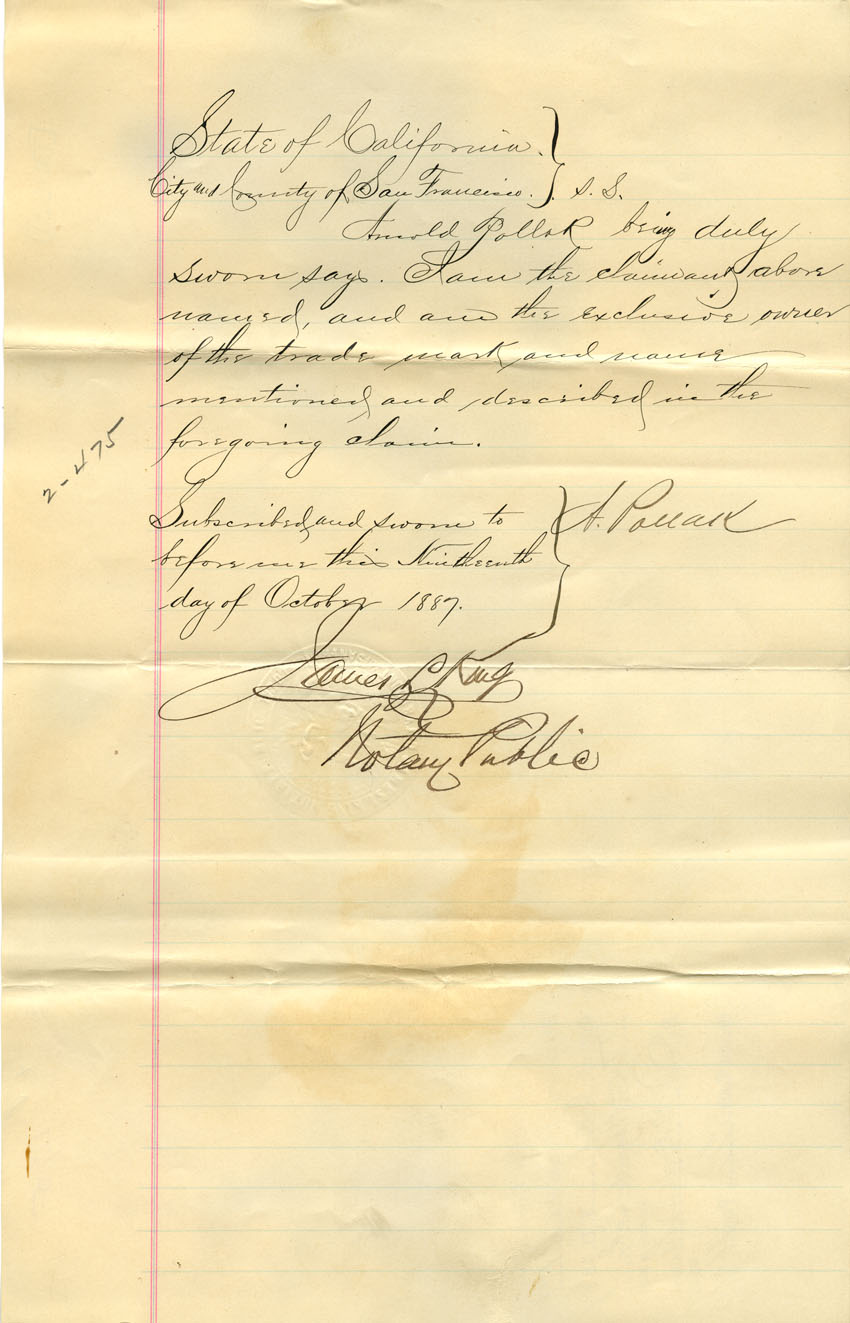 State of California.
City and County of San Francisco. } S. S.
Arnold Pollak being duly
sworn says. I am the claimant above
named, and am the exclusive owner
of the trade mark and name
mentioned and described in the
foregoing claim.
2-475
Subscribed and sworn to
before me this Ninetheenth
day of October 1887.
A. Pollak
James L. King
Notary Public